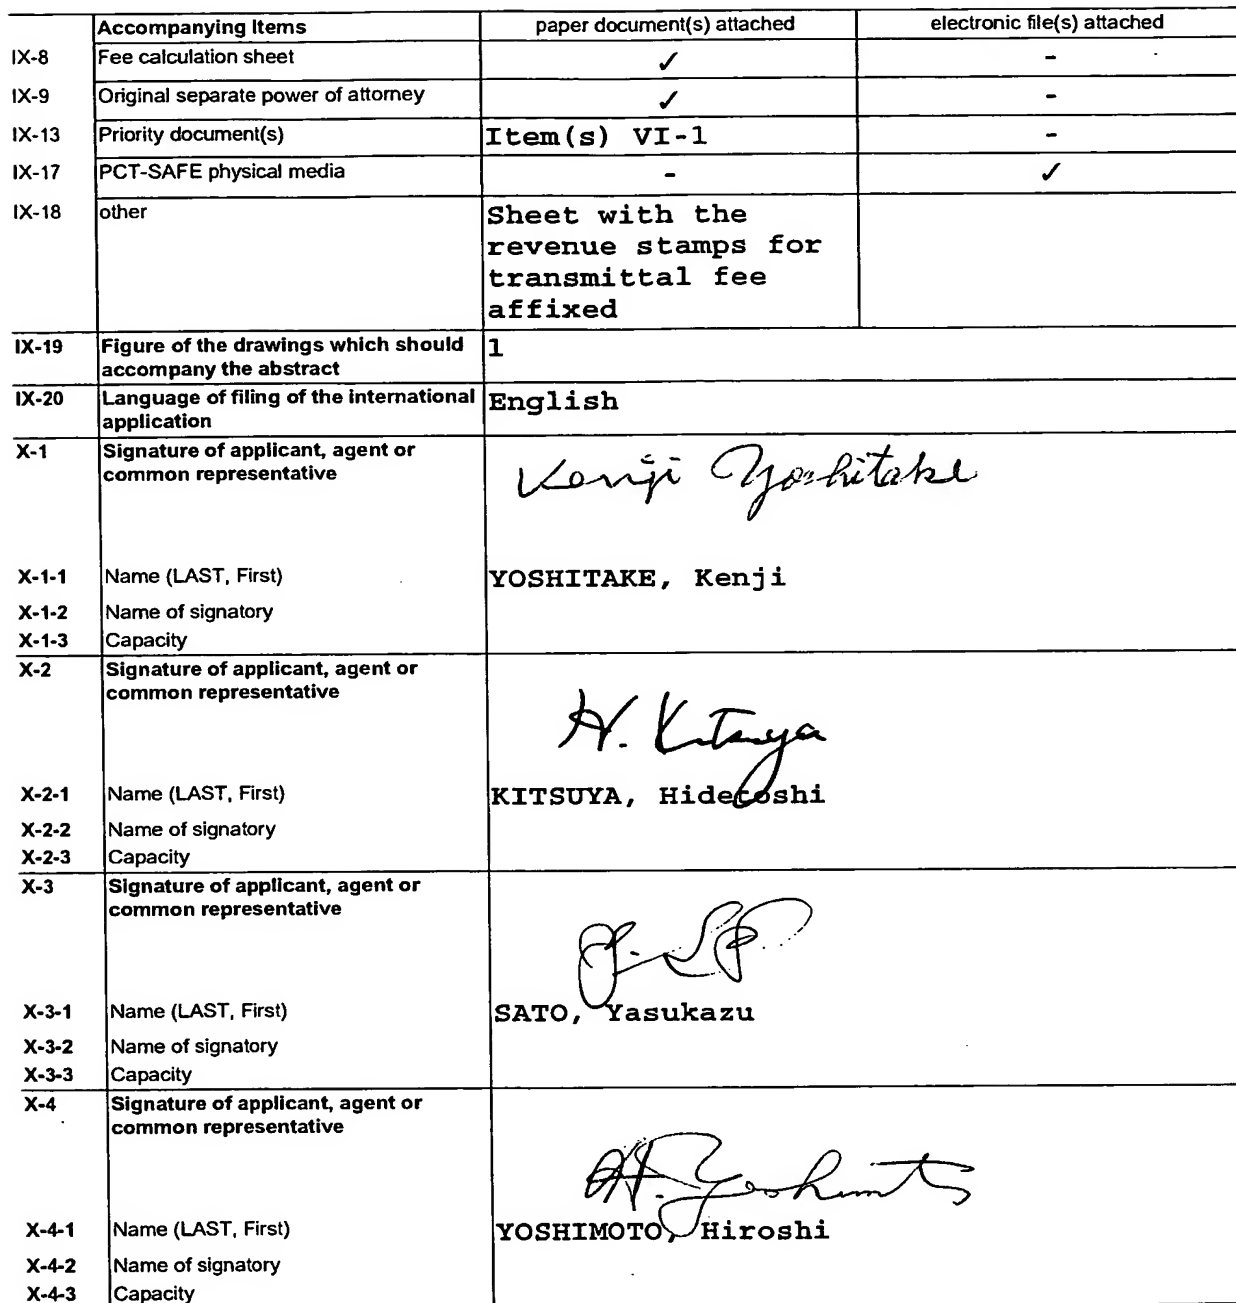 Accompanying Items paper document(s) attached electronic file(s) attached
IX-8 Fee calculation sheet ✓ -
IX-9 Original separate power of attorney ✓ -
IX-13 Priority document(s) Item(s) VI-1 -
IX-17 PCT-SAFE physical media - ✓
IX-18 other Sheet with the
revenue stamps for
transmittal fee
affixed
IX-19 Figure of the drawings which should 1
accompany the abstract
IX-20 Language of filing of the international English
application
X-1 Signature of applicant, agent or
common representative
Kenji Yoshitake
X-1-1 Name (LAST, First) YOSHITAKE, Kenji
X-1-2 Name of signatory
X-1-3 Capacity
X-2 Signature of applicant, agent or
common representative
H. Kitsuya
X-2-1 Name (LAST, First) KITSUYA, Hidetoshi
X-2-2 Name of signatory
X-2-3 Capacity
X-3 Signature of applicant, agent or
common representative
X-3-1 Name (LAST, First) SATO, Yasukazu
X-3-2 Name of signatory
X-3-3 Capacity
X-4 Signature of applicant, agent or
common representative
H. Yoshimoto
X-4-1 Name (LAST, First) YOSHIMOTO, Hiroshi
X-4-2 Name of signatory
X-4-3 Capacity